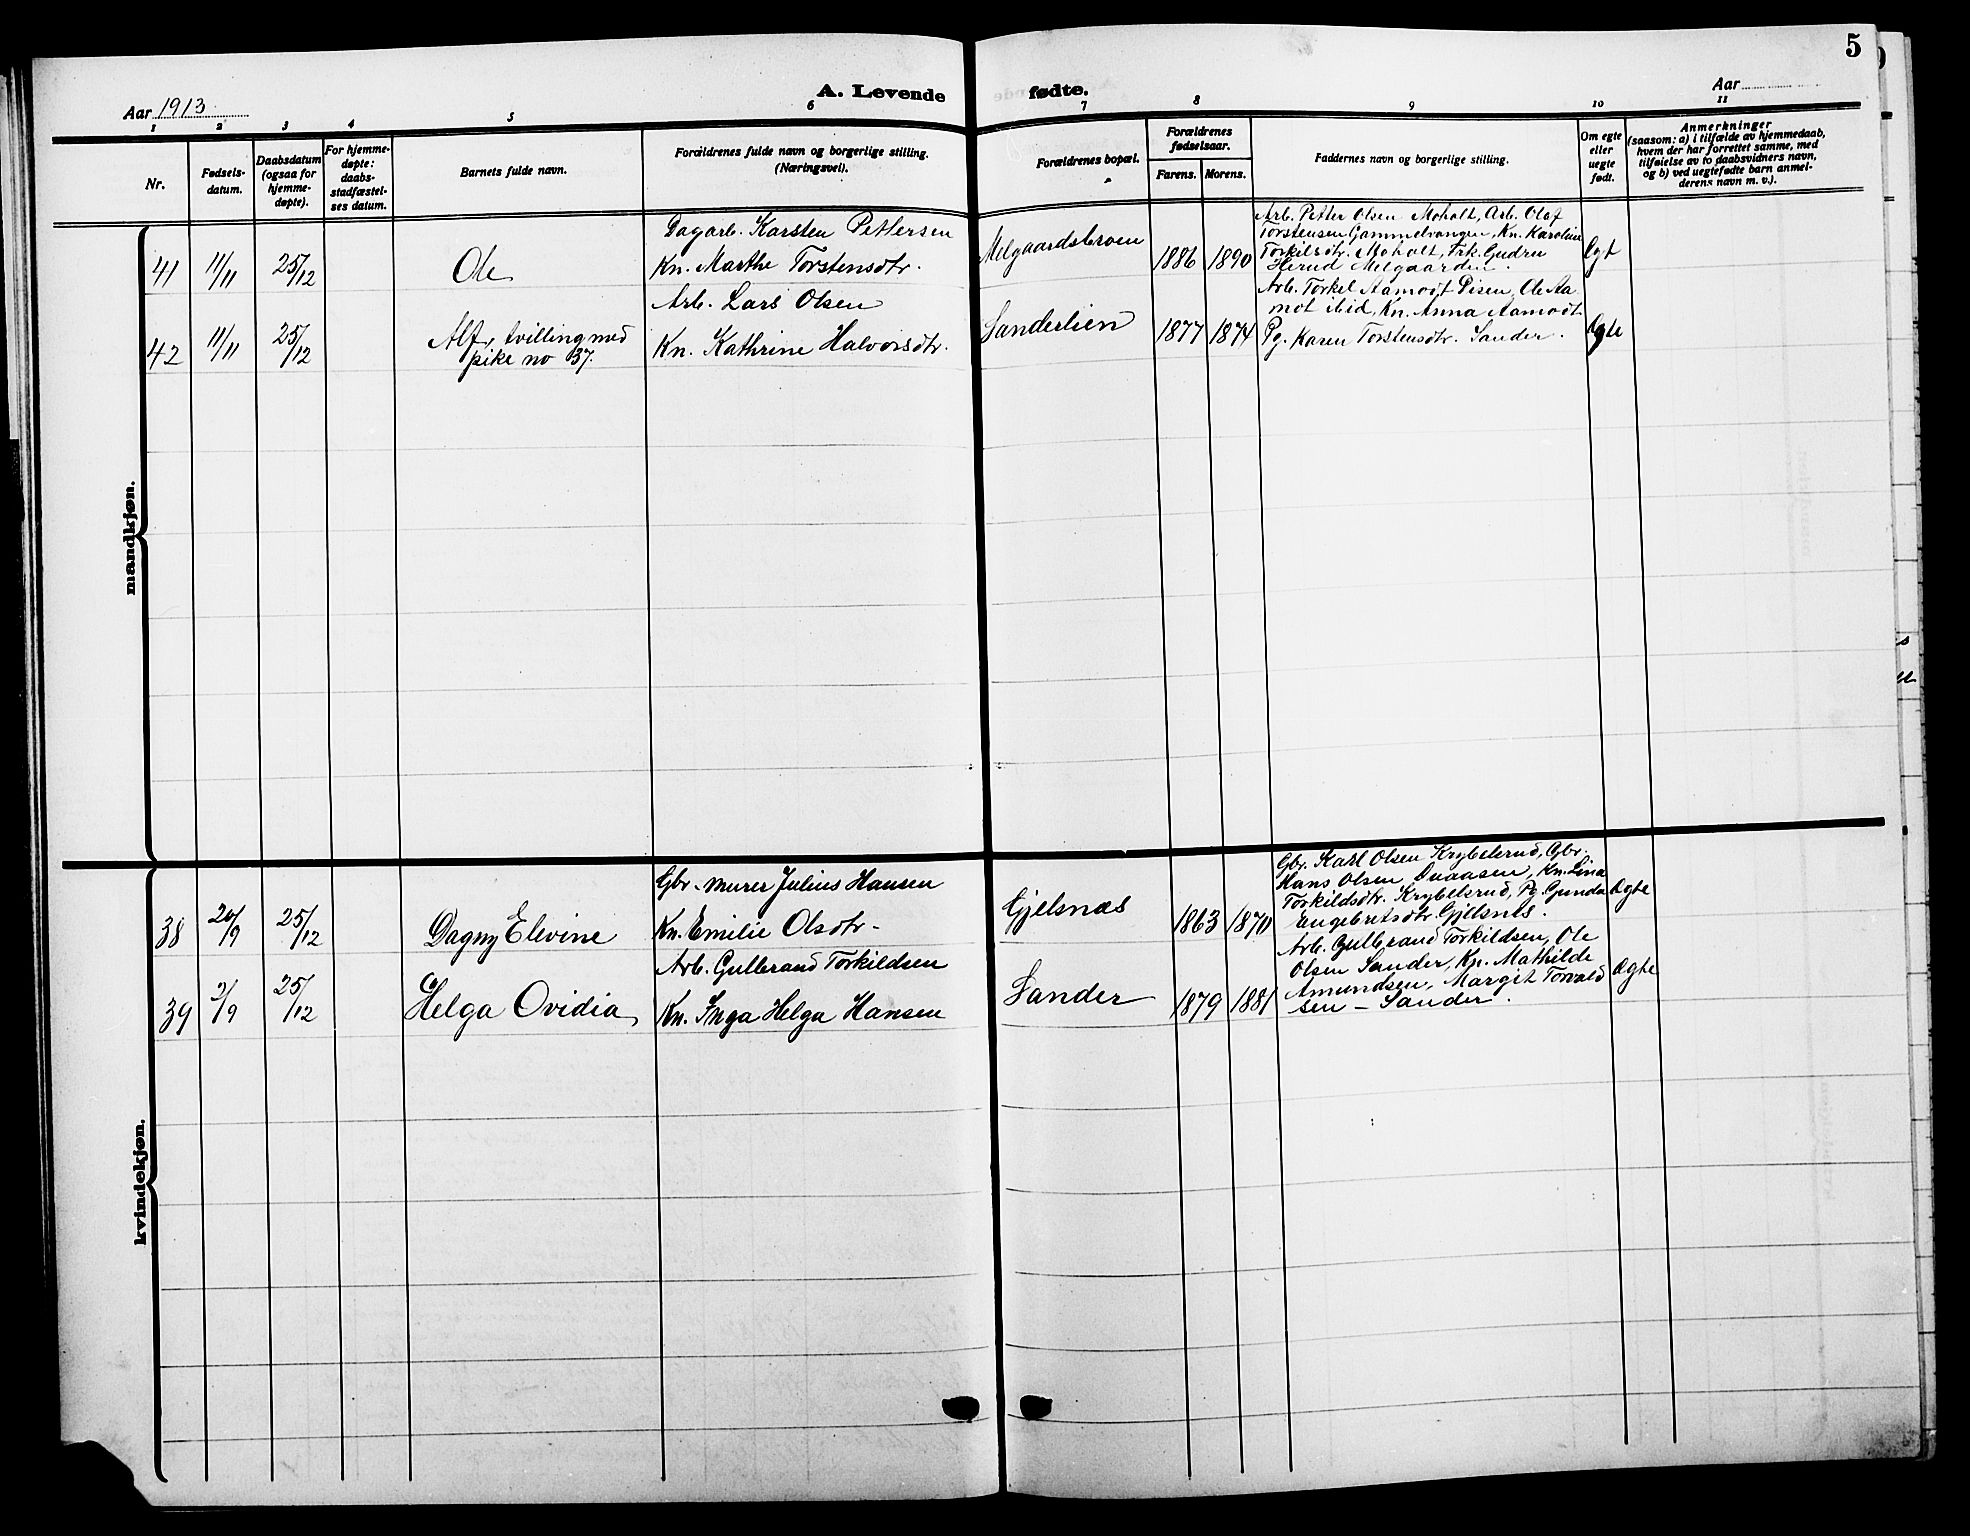 5
Aar 1913
A. Levende fødte.
Aar
1 2 3 4 5 6 7 8 9 10 11
Nr.
Fødsels-
datum.
Daabsdatum
(ogsaa for
hjemme-
døpte).
For hjemme-
døpte:
daabs-
stadfæstel-
ses datum.
Barnets fulde navn.
Forældrenes fulde navn og borgerlige stilling.
(Næringsvei).
Forældrenes bopæl.
Forældrenes
fødselsaar.
Farens. Morens.
Faddernes navn og borgerlige stilling.
Om egte
eller
uegte
født.
Anmerkninger
(saasom: a) i tilfælde av hjemmedaab,
hvem der har forrettet samme, med
tilføielse av to daabsvidners navn,
og b) ved uegtefødte barn anmel-
derens navn m. v.).
mandkjøn.
41 11/11 25/12 Ole
Dagarb. Karsten Pettersen
Kn. Marthe Torstensdtr.
1886 1890
Arb. Petter Olsen Moholt, Arb. Olaf
Torstensen Gammelvangen, Kn. Karoline
Torkilsdtr. Moholt, Frk. Gudrun
Herud Melgaarden.
Egt
42 11/11 25/12 Alf, tvilling med
pike no 37.
Arb. Lars Olsen
Kn. Kathrine Halvorsdtr.
Sanderlien 1877 1874
Arb. Torkel Aamodt Disen, Ole Aa
mot ibid, Kn. Anna Aamodt
Pg. Karen Torstensdtr. Sander.
Egte
kvindekjøn.
38 20/9 25/12 Dagny Elevine
Gbr. murer Julius Hansen
Kn. Emilie Olsdtr.
Gjelsnæs 1863 1870
Gbr. Karl Olsen Krybelsrud, Gbr.
Hans Olsen, Kn. Lina
Torkildsdtr. Krybelsrud, Pg. Gunda
Engebretsdtr. Gjelsnes.
Egte
39 2/9 25/12 Helga Ovidia
Arb. Gulbrand Torkildsen
Kn. Inga Helga Hansen
Sander 1879 1881
Arb. Gulbrand Torkildsen, Ole
Olsen Sander, Kn. Mathilde
Amundsen, Margit Torvald
sen - Sander.
Egte